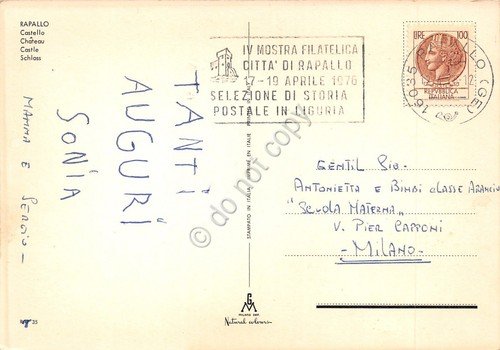 RAPALLO
Castello
Château
Castle
Schloss
IV MOSTRA FILATELICA
CITTA' DI RAPALLO
17-19 APRILE 1976
SELEZIONE DI STORIA
POSTALE IN LIGURIA
LIRE 100
REPVBBLICA
ITALIANA
16035 RAPALLO (GE)
TANTI
AUGURI
SONIA
MAMMA E SERGIO -
STAMPATO IN ITALIE IMPRIME EN ITALIE
do not copy
GENTIL
ANTONIETTA E BIMBI CLASSE ARANCIO
"SCUOLA MATERNA"
V. PIER CAPPONI
- MILANO -
35
GM
MILANO
Natural colours